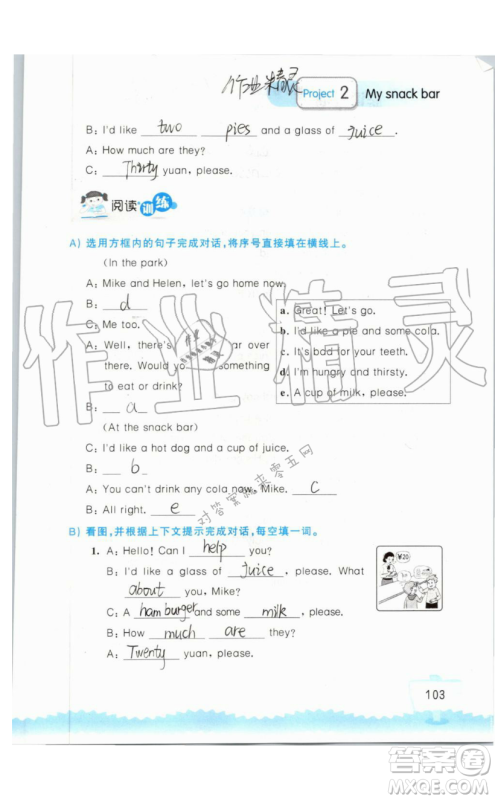 作业精灵 Project 2 My snack bar
B: I'd like two pies and a glass of juice.
A: How much are they?
C: Thirty yuan, please.
阅读训练
A) 选用方框内的句子完成对话,将序号直接填在横线上。
(In the park)
A: Mike and Helen, let's go home now.
B: d
C: Me too.
A: Well, there's ar over
there. Would you something
to eat or drink?
B: a
(At the snack bar)
C: I'd like a hot dog and a cup of juice.
B: b
A: You can't drink any cola now, Mike. C
B: All right. e
a. Great! Let's go.
b. I'd like a pie and some cola.
c. It's bad for your teeth.
d. I'm hungry and thirsty.
e. A cup of milk, please.
B) 看图,并根据上下文提示完成对话,每空填一词。
1. A: Hello! Can I help you?
B: I'd like a glass of juice, please. What
about you, Mike?
C: A hamburger and some milk.
B: How much are they?
A: Twenty yuan, please.
¥20
103
作业精灵
对答案就来零五网
答案圈
MXQE.COM